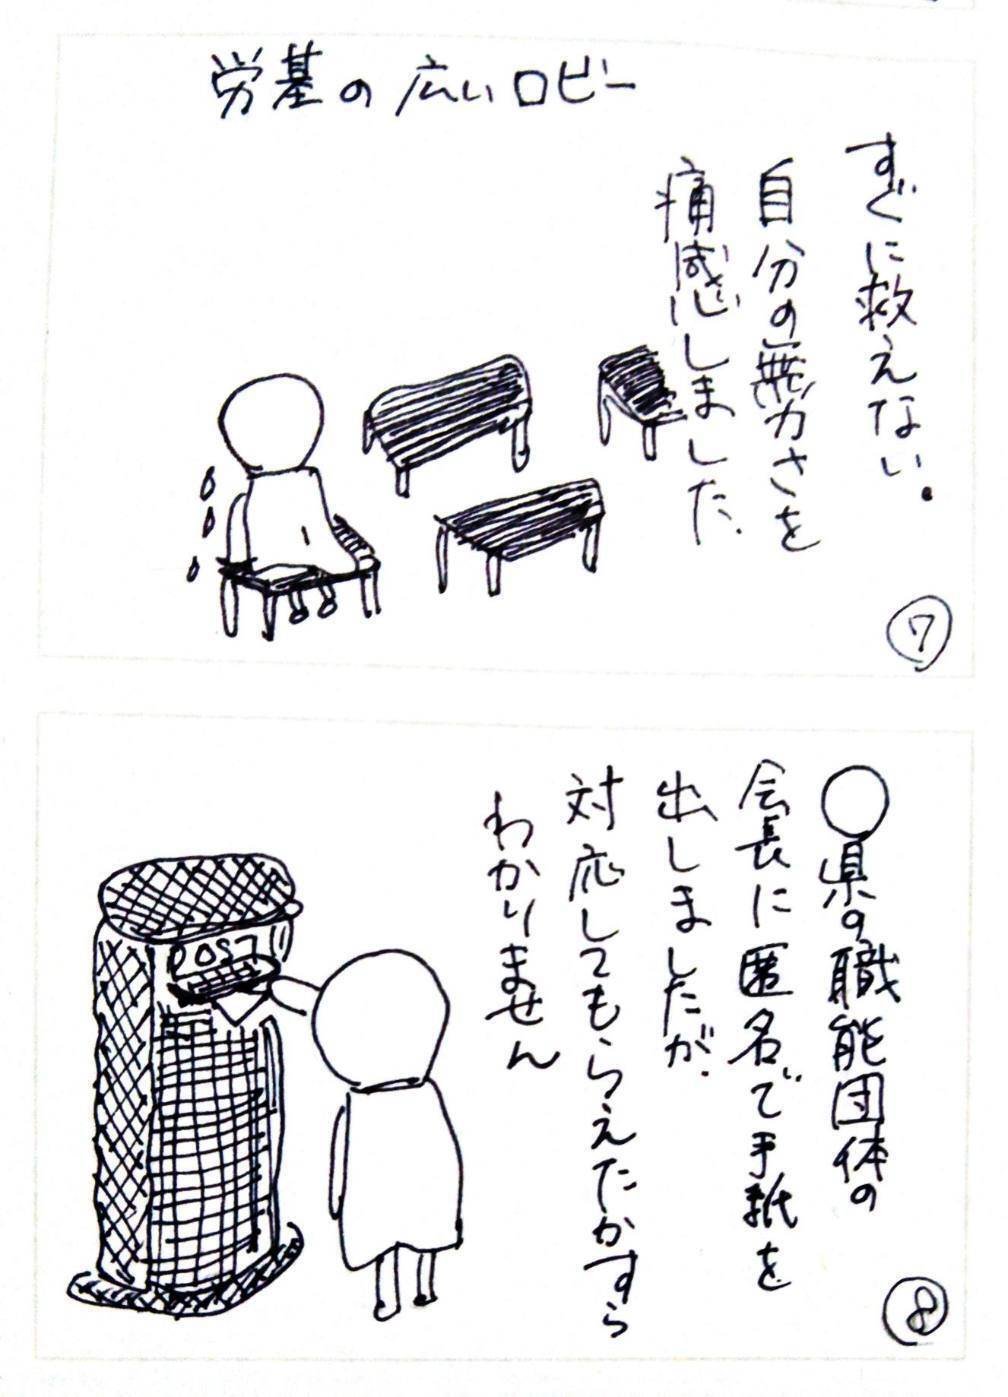 労基の広いロビー
すぐに救えない。
自分の無力さを
痛感しました.
7
○県の職能団体の
会長に匿名で手紙を
出しましたが.
対応してもらえたかすら
わかりません
POST
8